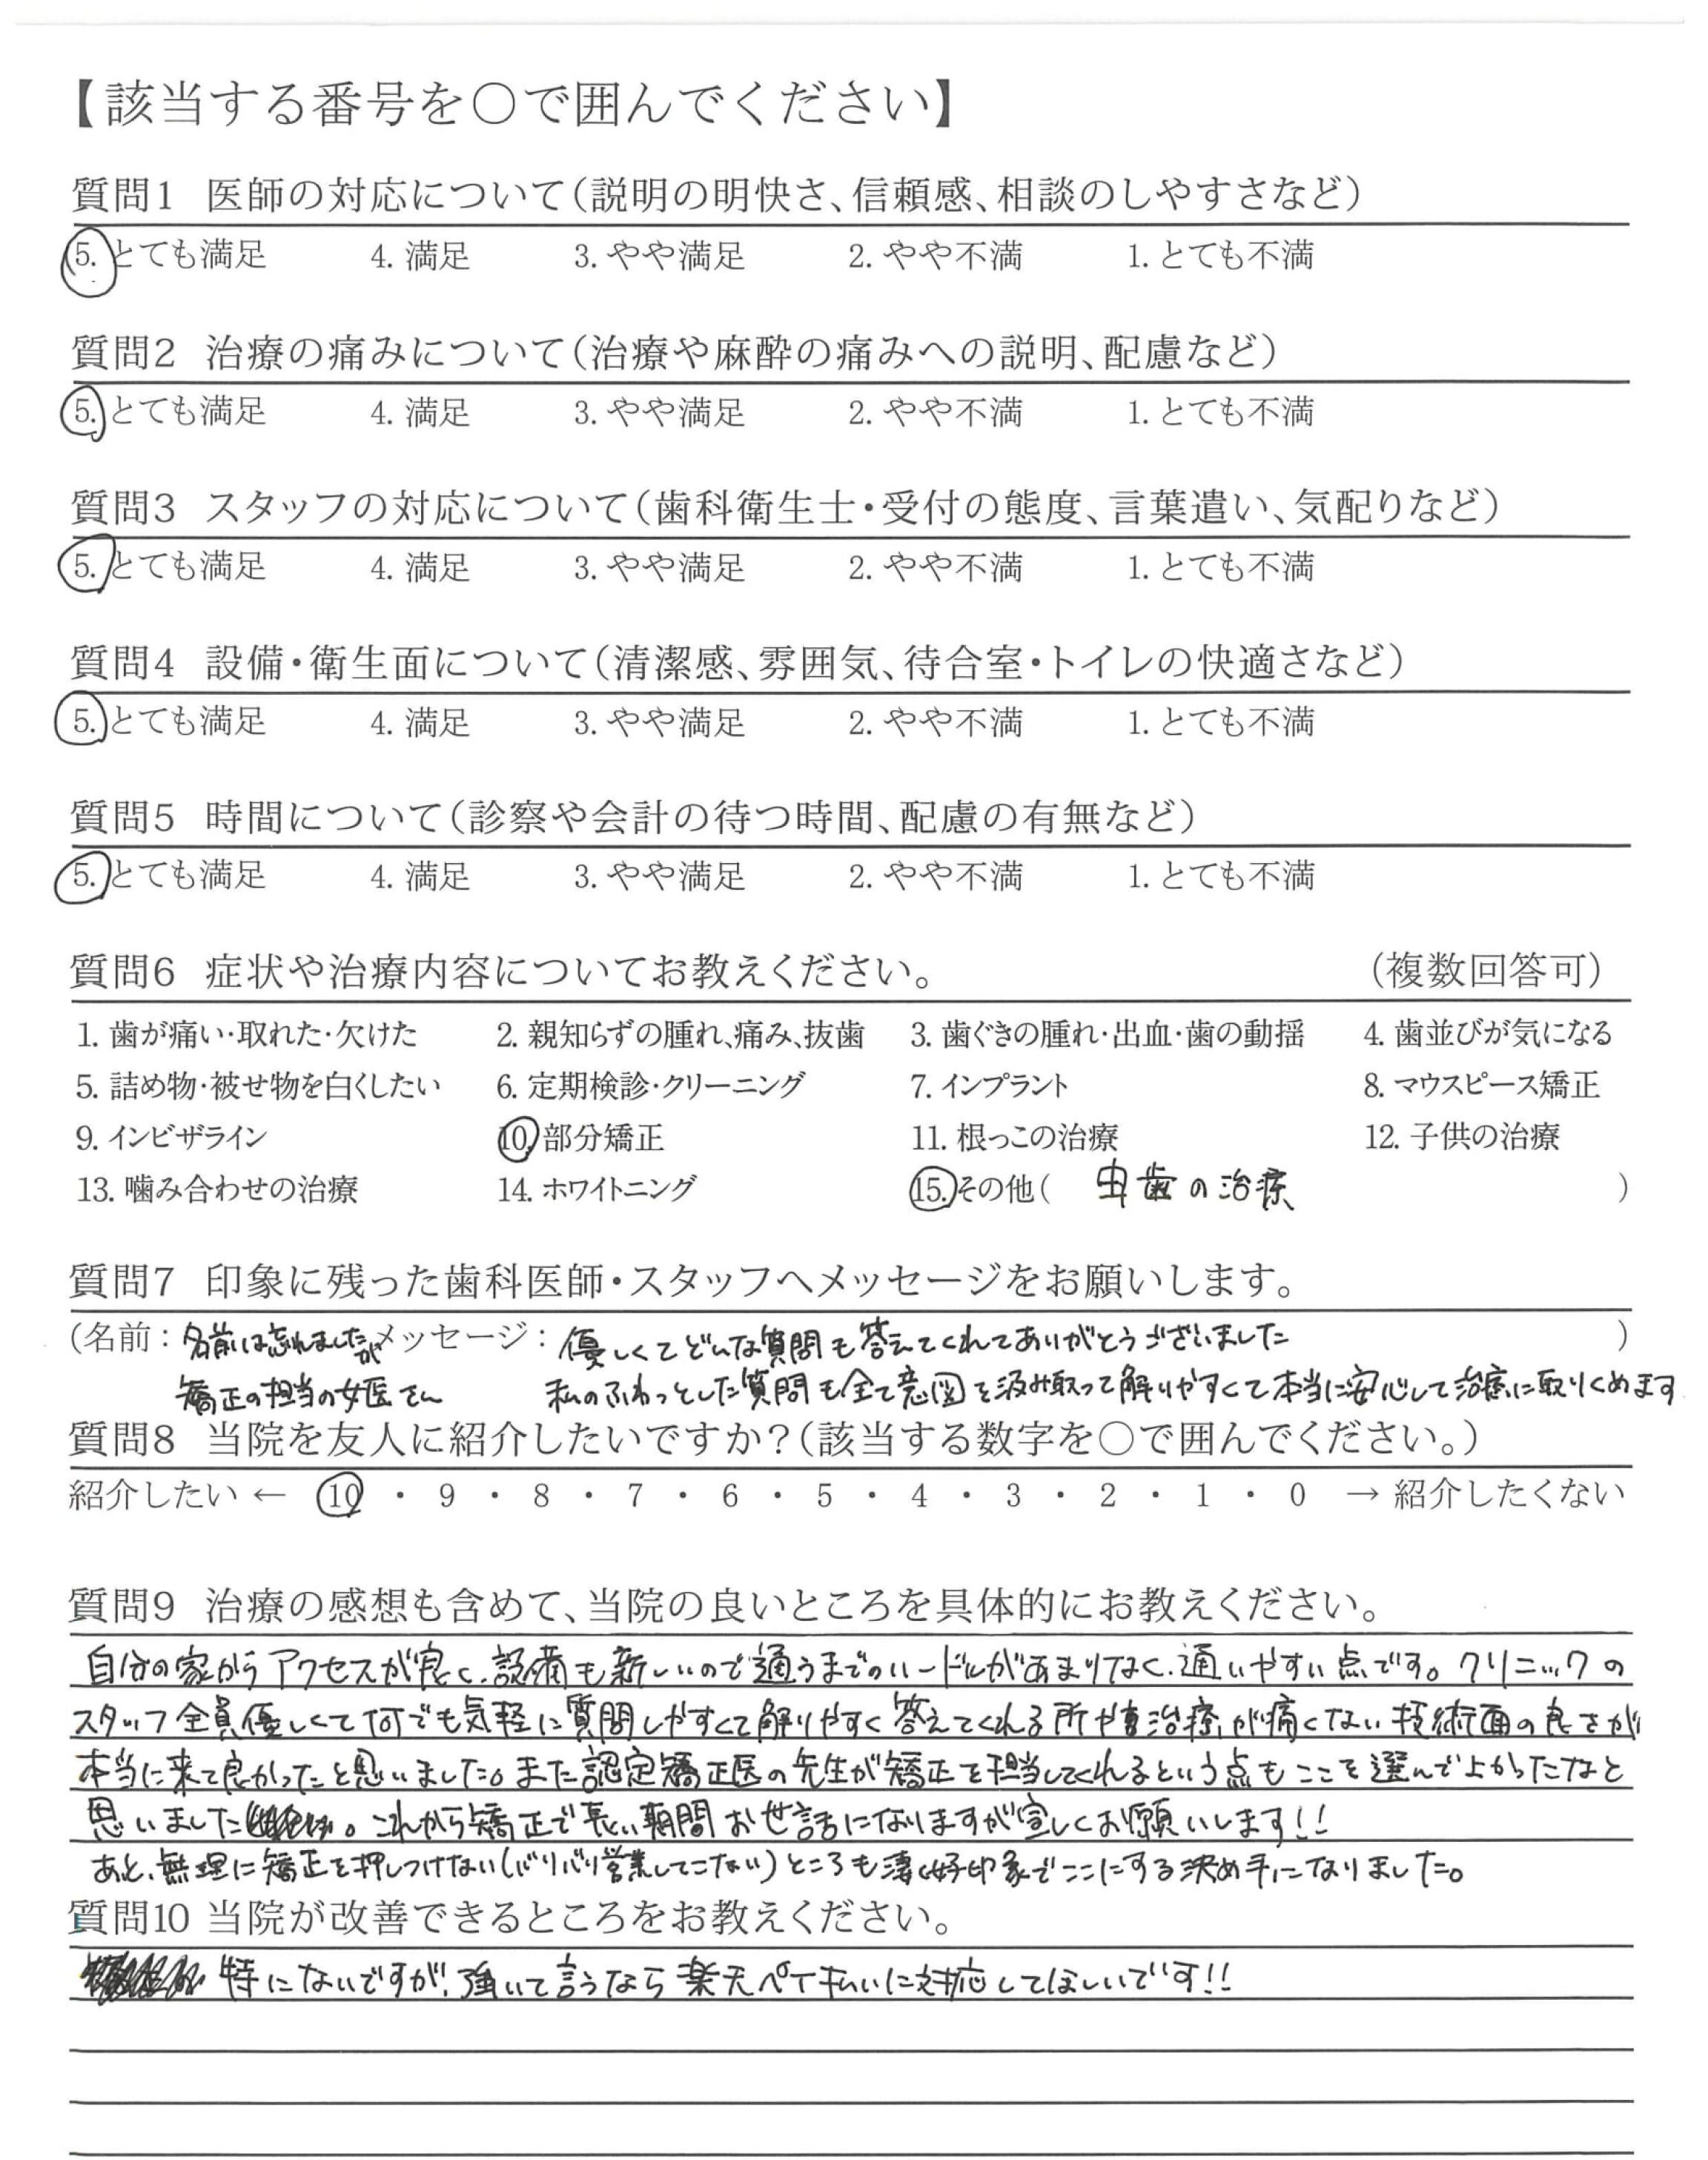 【該当する番号を○で囲んでください】
質問1 医師の対応について(説明の明快さ、信頼感、相談のしやすさなど)
5. とても満足 4. 満足 3. やや満足 2. やや不満 1. とても不満
質問2 治療の痛みについて(治療や麻酔の痛みへの説明、配慮など)
5. とても満足 4. 満足 3. やや満足 2. やや不満 1. とても不満
質問3 スタッフの対応について(歯科衛生士・受付の態度、言葉遣い、気配りなど)
5. とても満足 4. 満足 3. やや満足 2. やや不満 1. とても不満
質問4 設備・衛生面について(清潔感、雰囲気、待合室・トイレの快適さなど)
5. とても満足 4. 満足 3. やや満足 2. やや不満 1. とても不満
質問5 時間について(診察や会計の待つ時間、配慮の有無など)
5. とても満足 4. 満足 3. やや満足 2. やや不満 1. とても不満
質問6 症状や治療内容についてお教えください。 (複数回答可)
1. 歯が痛い・取れた・欠けた 2. 親知らずの腫れ、痛み、抜歯 3. 歯ぐきの腫れ・出血・歯の動揺 4. 歯並びが気になる
5. 詰め物・被せ物を白くしたい 6. 定期検診・クリーニング 7. インプラント 8. マウスピース矯正
9. インビザライン 10. 部分矯正 11. 根っこの治療 12. 子供の治療
13. 噛み合わせの治療 14. ホワイトニング 15. その他( 虫歯の治療 )
質問7 印象に残った歯科医師・スタッフへメッセージをお願いします。
(名前: 名前は忘れましたが メッセージ: 優しくてどんな質問も答えてくれてありがとうございました )
矯正の担当の女医さん 私のふわっとした質問も全て意図を汲み取って解りやすくて本当に安心して治療に取りくめます
質問8 当院を友人に紹介したいですか?(該当する数字を○で囲んでください。)
紹介したい ← 10 ・ 9 ・ 8 ・ 7 ・ 6 ・ 5 ・ 4 ・ 3 ・ 2 ・ 1 ・ 0 → 紹介したくない
質問9 治療の感想も含めて、当院の良いところを具体的にお教えください。
自分の家からアクセスが良く、設備も新しいので通うまでのハードルがあまりなく、通いやすい点です。クリニックの
スタッフ全員優しくて何でも気軽に質問しやすくて解りやすく答えてくれる所や治療が痛くない技術面の良さが
本当に来て良かったと思いました。また認定矯正医の先生が矯正を担当してくれるという点もここを選んでよかったなと
思いました。これから矯正で長い期間お世話になりますが宜しくお願いします!!
あと、無理に矯正を押しつけない(バリバリ営業してこない)ところも凄く好印象でここにする決め手になりました。
質問10 当院が改善できるところをお教えください。
特にないですが、強いて言うなら楽天ペイ払いに対応してほしいです!!